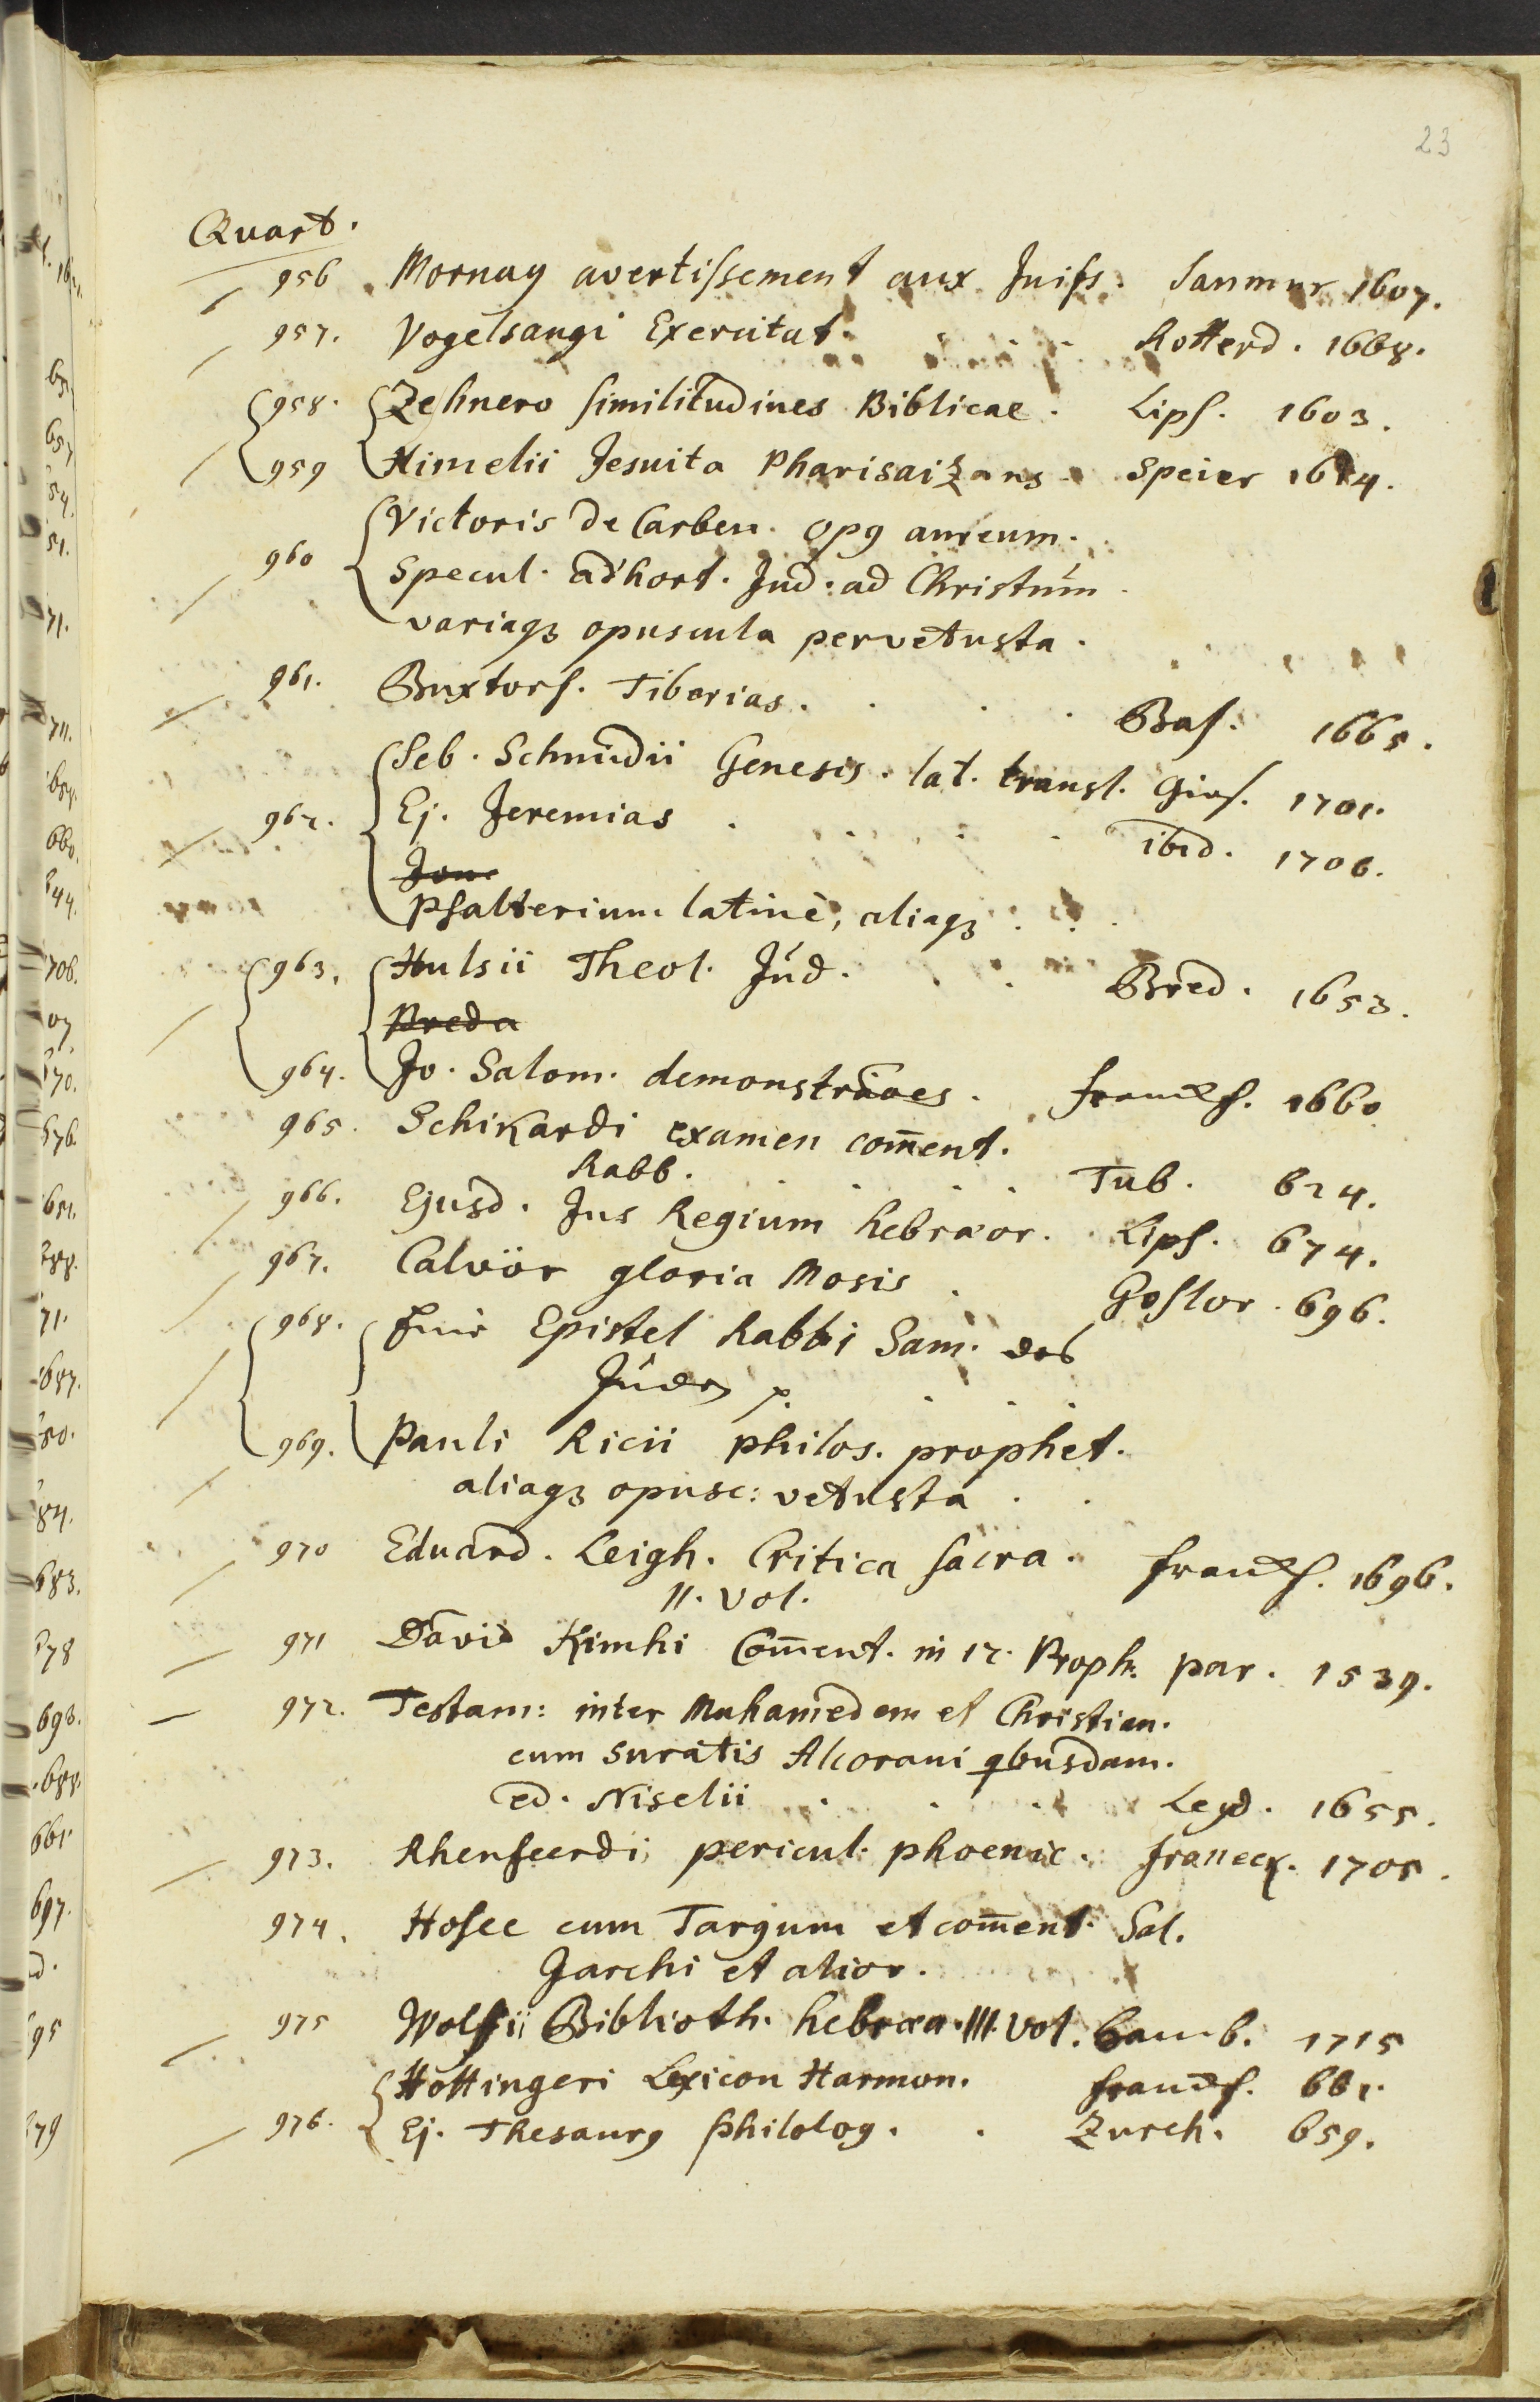 23
Quart.
956 Mornay avertissement aux Juifs. Saumur 1607.
957. Vogelsangi Exercitat. Rotterd. 1668.
958. Zehnero similitudines Biblicae. Lips. 1603.
959 Himelii Jesuita Pharisaizans. Speier 1624.
Victoris de Carben. opg aureum.
960 Specul. adhort. Jud. ad Christum
variaqz opuscula pervetusta.
961. Buxtorf. Tiberias. Bas. 1665.
Seb. Schmidii Genesis. lat. transl.
962. Ej. Jeremias ibid. 1706.
Psalterium latinè, aliaqz
963. Hulsii Theol. Jud. Bred. 1653.
Breda
964. Jo. Salom. demonstrãoes. franckf. 1660
965. Schikardi examen com̄ent.
Rabb. Tub. 624.
966. Ejusd. Jus Regium hebræor. Lips. 674.
967. Calvör gloria Mosis Goslar. 696.
968. Epistel Rabbi Sam. des
Juden
969. Pauli Ricii philos. prophet.
aliaqz opusc: vetusta
970 Eduard. Leigh. Critica sacra. franckf. 1696.
II. Vol.
971 David Kimhi Com̄ent. in 12. Proph. par. 1539.
972. Testam: inter Muhamedem et Christian.
cum suratis Alcorani qbusdam.
ed. Niselii Leyd. 1655.
973. Rhenferdi pericul. phoenic. franeck. 1705.
974. Hosee cum Targum et com̄ent. Sal.
Jarchi et alior.
975 Wolfii Biblioth. hebræa. III. Vol. Hamb. 1715
Hottingeri Lexicon Harmon. franckf. 661.
976. Ej. Thesaurg philolog. Zurch. 659.